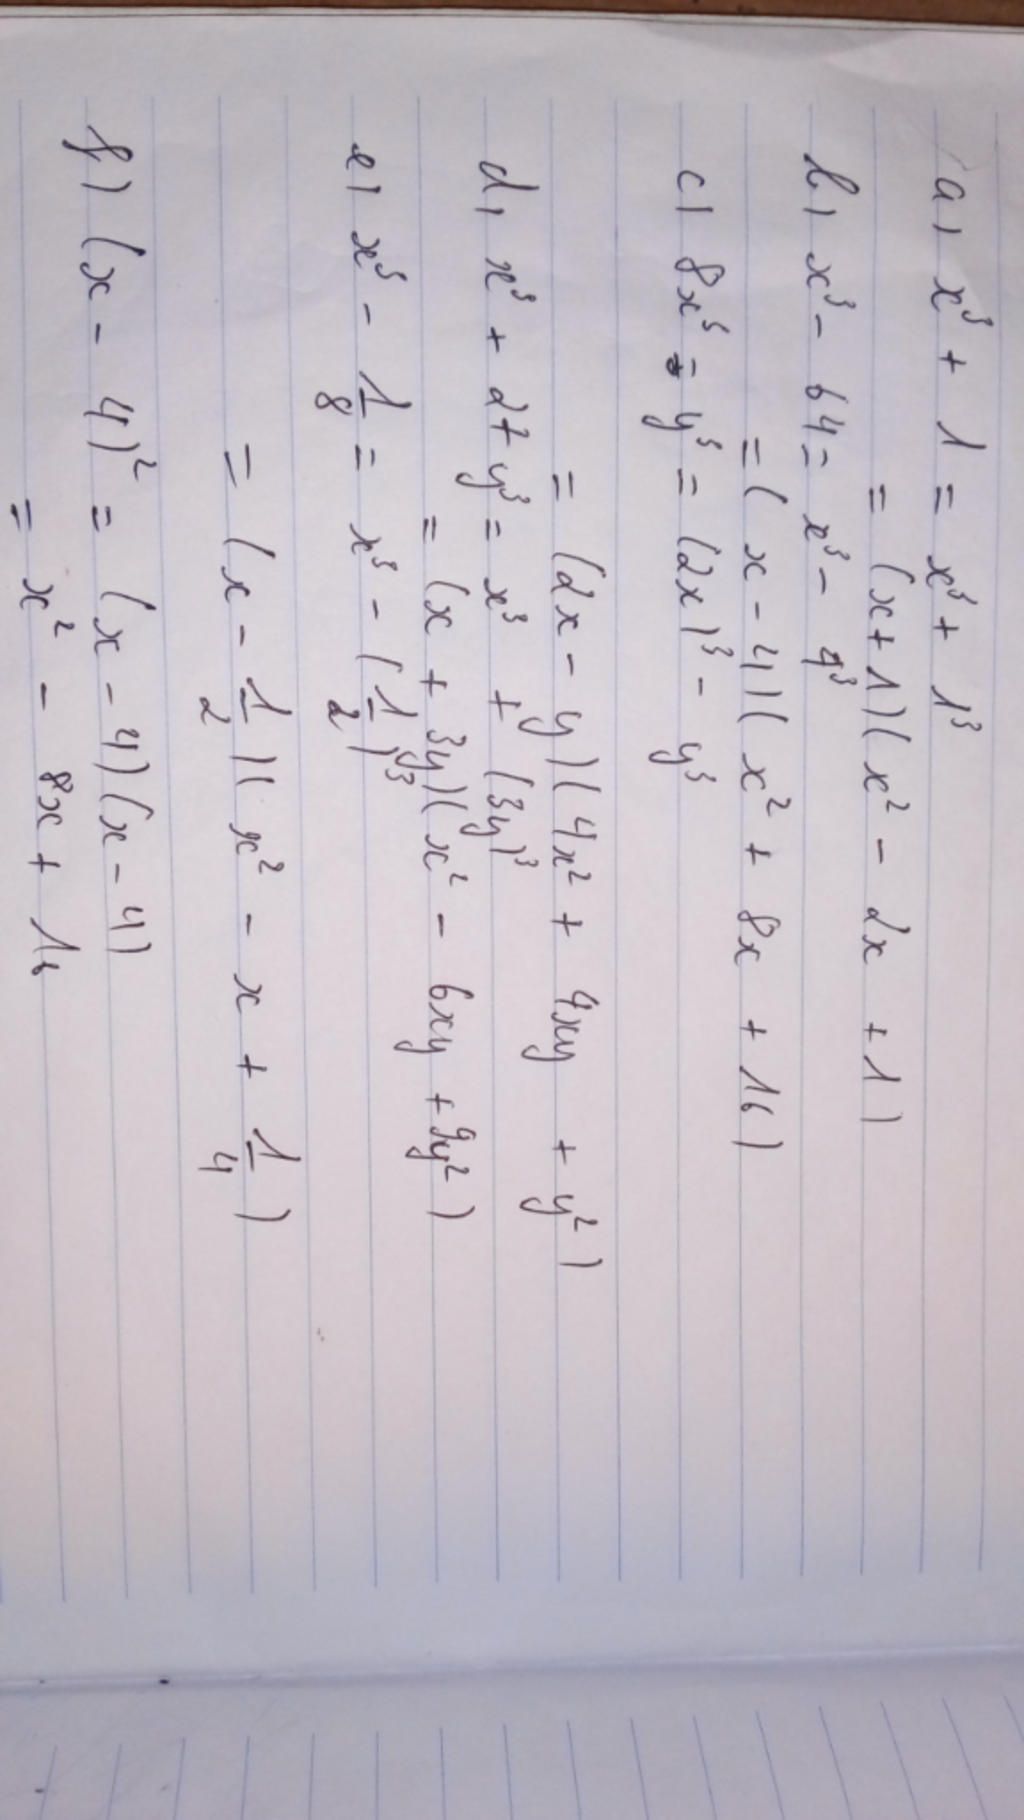 a, x³ + 1 = x³ + 1³
= (x+1)(x² - 2x + 1)
b, x³ - 64 = x³ - 4³
= (x - 4)(x² + 8x + 16)
c) 8x³ - y³ = (2x)³ - y³
= (2x - y)(4x² + 4xy + y²)
d, x³ + 27y³ = x³ + (3y)³
= (x + 3y)(x² - 6xy + 9y²)
e) x³ - 1/8 = x³ - (1/2)³
= (x - 1/2)(x² - x + 1/4)
f) (x - 4)² = (x - 4)(x - 4)
= x² - 8x + 16